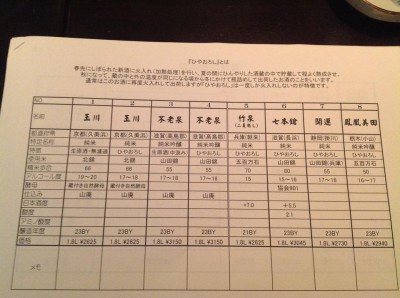 「ひやおろし」とは
春先にしぼられた新酒に火入れ(加熱処理)を行い、夏の間にひんやりした酒蔵の中で貯蔵して程よく熟成させ、
秋になって、蔵の中と外の温度が同じになる頃から冬にかけて瓶詰めして出荷したお酒のことをいいます。
通常はこのお酒に再度火入れして出荷しますが「ひやおろし」は一度しか火入れしないのが特徴です。
NO. 1 2 3 4 5 6 7 8
名前 玉川 玉川 不老泉 不老泉 竹泉 七本鎗 開運 鳳凰美田
都道府県 京都(久美浜) 京都(久美浜) 滋賀(高島郡) 滋賀(高島郡) 兵庫(朝来) 滋賀(長浜) 静岡(掛川) 栃木(小山)
特定名称 純米 純米 純米吟醸 純米吟醸 純米 純米 純米 純米吟醸
特徴 生原酒・無濾過 ひやおろし 生原酒(中汲み) ひやおろし ひやおろし ひやおろし ひやおろし ひやおろし
使用米 北錦 北錦 山田錦 山田錦 五百万石 山田錦 山田錦(兵庫) 五百万石
精米歩合 66 66 55 55 70 50 55
アルコール度 19~20 17~18 17~18 17~18 15 15~16 17~18 16~17
酵母 蔵付き自然酵母 蔵付き自然酵母 協会901
仕込み 山廃 山廃 山廃 山廃
日本酒度 +7.0 +5.5
酸度 2.1
アミノ酸度
醸造年度 23BY 23BY 23BY 23BY 21BY 23BY 23BY 23BY
価格 1.8L ¥2625 1.8L ¥2625 1.8L ¥3150 1.8L ¥3150 1.8L ¥2625 1.8L ¥3045 1.8L ¥2730 1.8L ¥2940
メモ